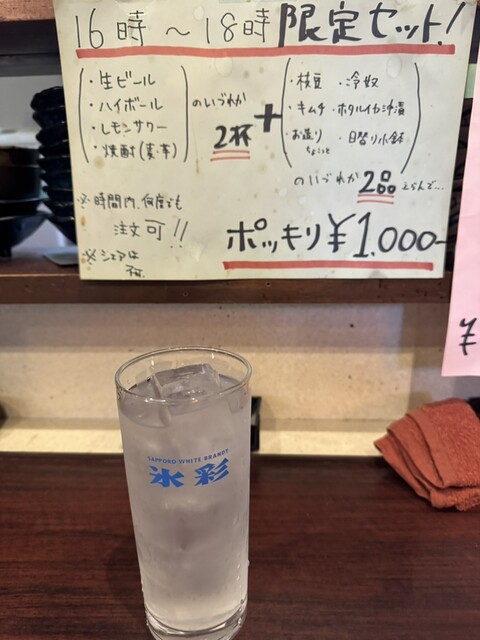 16時～18時限定セット!
・生ビール
・ハイボール
・レモンサワー
・焼酎(麦・芋)
のいづれか
2杯
+
・枝豆 ・冷奴
・キムチ ・ホタルイカ沖漬
・お造り ・日替り小鉢
ちょこっと
のいづれか2品えらんで…
※時間内、何度でも
注文可!!
※シェアは
不可.
ポッキリ¥1.000-
¥
SAPPORO WHITE BRANDY
氷彩